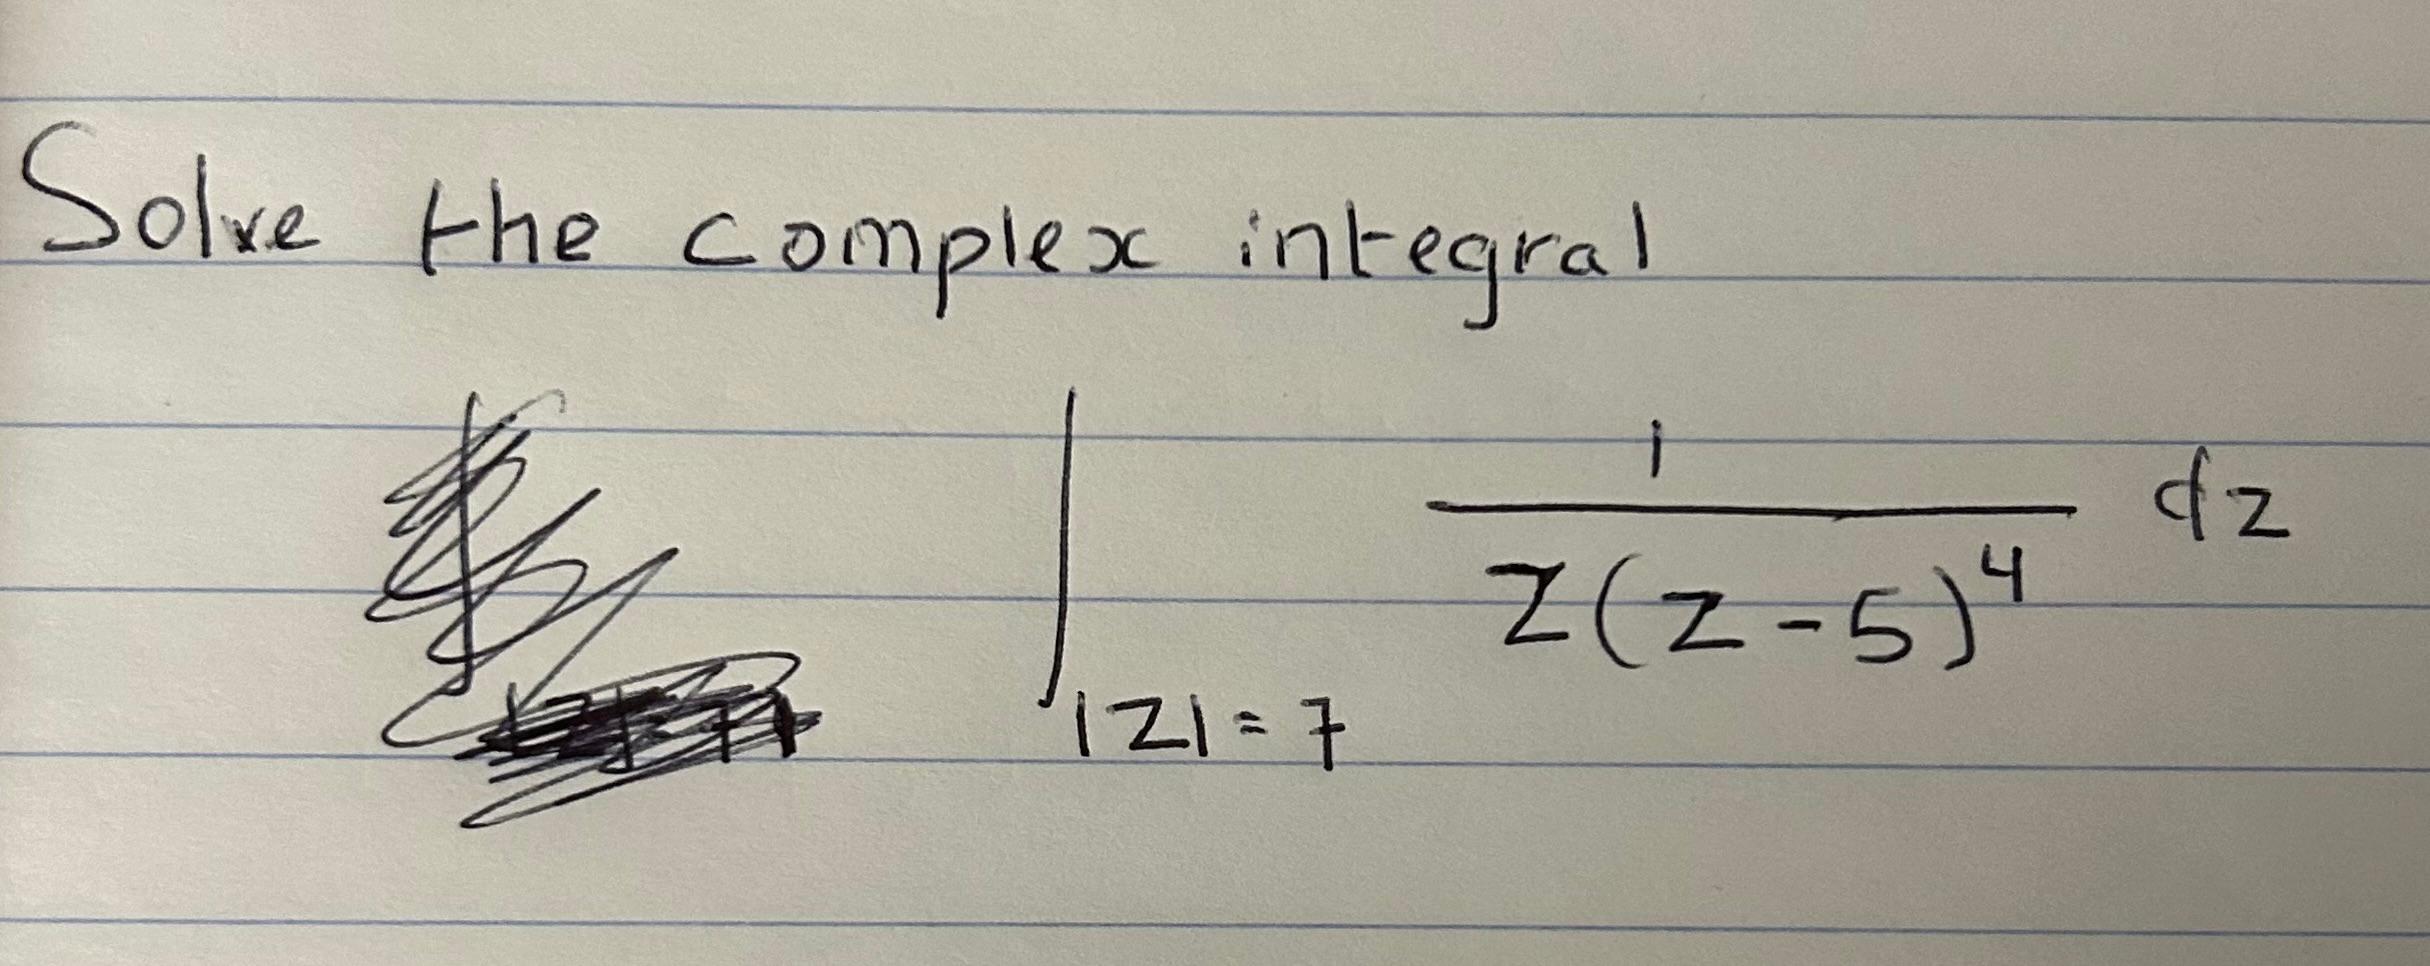 Solve the complex integral
∫_{|z|=7} \frac{1}{z(z-5)^4} dz